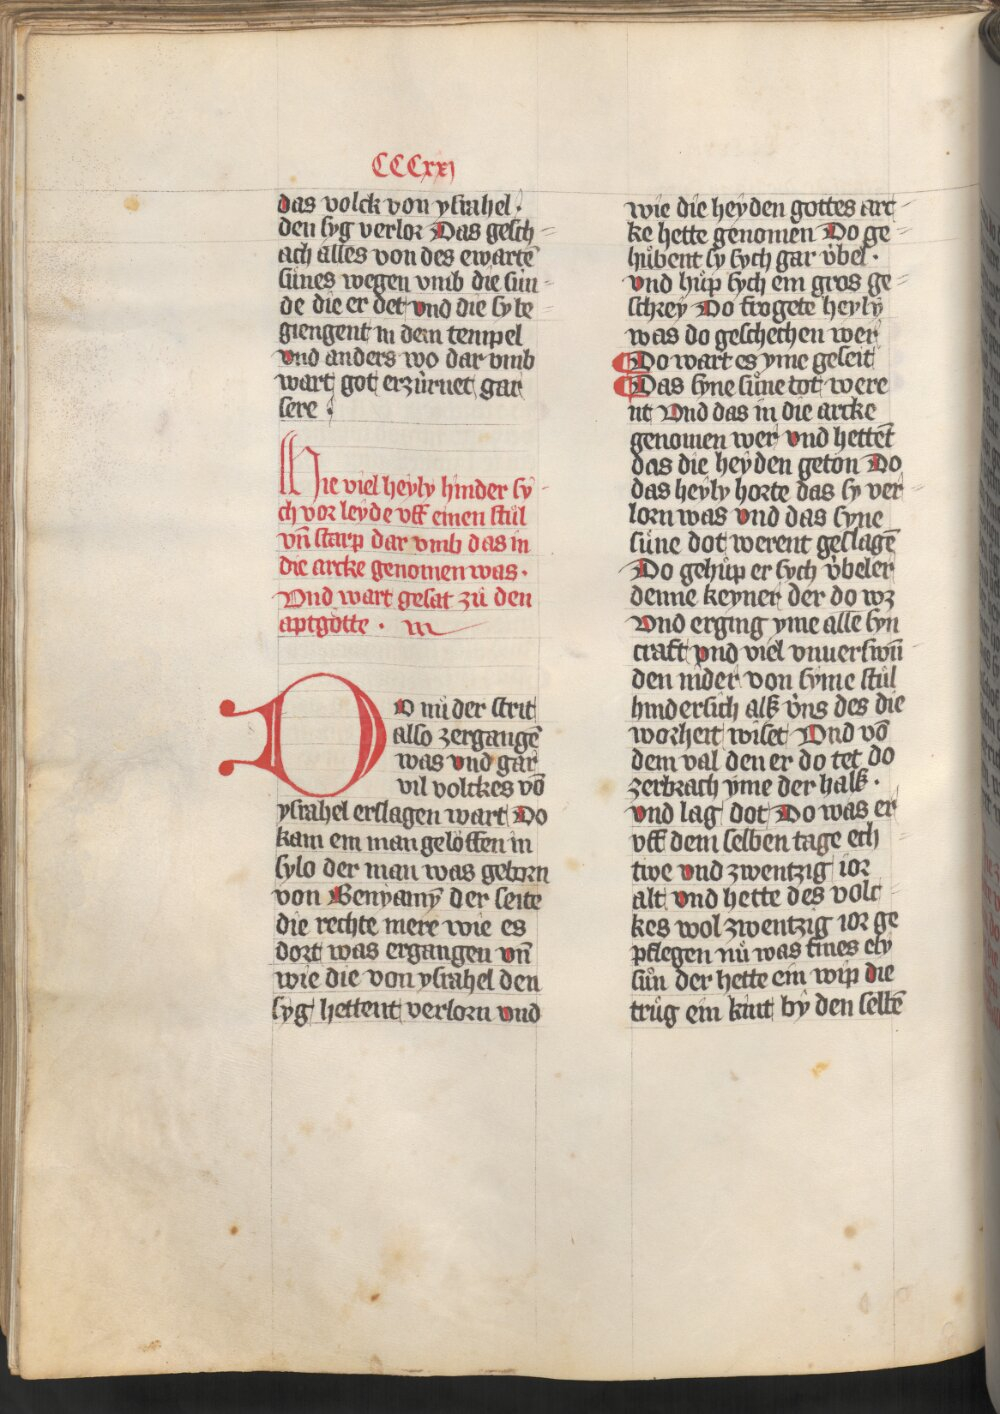 CCCxxj
das volck von ysrahel.
den syg verlor Das gesch=
ach alles von des ewartē
sůnes wegen vmb die sün-
de die er det vnd die by ře
giengent in dem tempel
vnd anders wo dar vmb
wart got erzürnet gar
sere.
Hie viel heyly hinder sy-
ch vor leyde vff einen stůl
vn̄ starp dar vmb das in
die arcke genomen was.
Vnd wart gesat zů den
aptgötte.
DO nů der strit
also zergangē
was vnd gar
vil volckes vō
ysrahel erslagen wart Do
kam ein man geloͤffen in
sylo der man was geborn
von Benyamẏ der seite
die rechte mere wie es
dort was ergangen vn̄
wie die von ysrahel den
syg hettent verlorn vnd
wie die heyden gottes arc=
ke hette genomen Do ge=
hůbent sy sych gar v̊bel.
vnd hůp sych ein gros ge=
schrey Do frogete heyly
was do geschechen wer
Do wart es yme geseit
Das syne sůne tot were
nt Vnd das in die arcke
genomen wer vnd hettēt
das die heyden geton Do
das heyly horte das sy ver=
lorn was vnd das syne
sůne dot werent geslagē
Do gehůp er sych v̊beler
denne keyner der do wz
Vnd erging yme alle syn
craft vnd viel vnuerswn̄=
den nider von syme stůl
hindersich alß v̊ns des die
worheit wiset Vnd vō
dem val den er do tet do
zerbrach yme der halß.
vnd lag dot Do was er
vff dem selben tage ech=
twe vnd zwentzig ior
alt vnd hette des volc=
kes wol zwentzig ior ge
pflegen nů was sines ely
sůn der hette ein wip die
trůg ein kint by den selbē